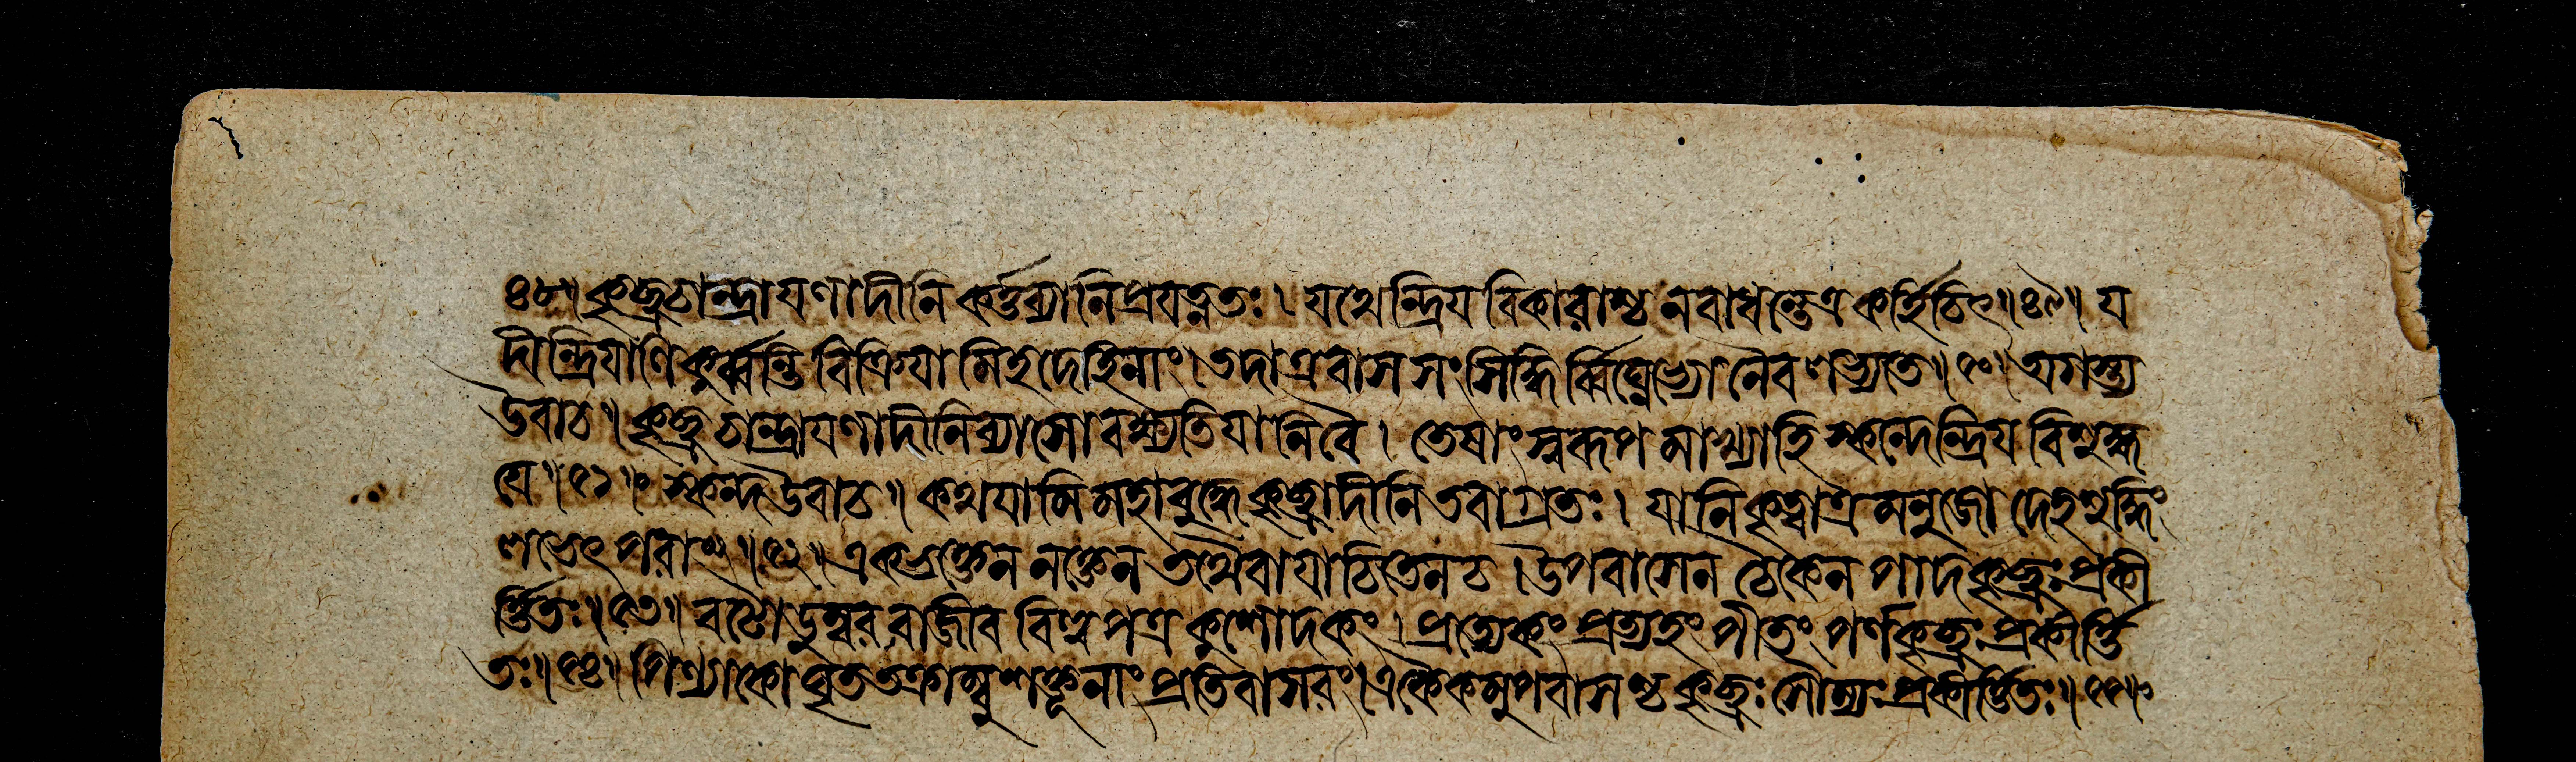 ৪৮॥ কৃচ্ছ্রচান্দ্রাযণাদীনি কর্ত্তব্যানি প্রযত্নতঃ। যথেন্দ্রিয বিকারাশ্চ ন বাধন্তেঽত্র কর্হিচিৎ॥ ৪৯॥ য
দীন্দ্রিযাণি কুর্ব্বন্তি বিক্রিযামিহ দেহিনাং। তদাত্র বাস সংসিদ্ধির্ব্বিঘ্নেভ্যো নৈব লভ্যতে॥ ৫০॥ অগস্ত্য
উবাচ॥ কৃচ্ছ্রচান্দ্রাযণাদীনি ব্যাসো বক্ষ্যতি যানি বৈ। তেষাং স্বরূপমাখ্যাহি স্কন্দেন্দ্রিয বিশুদ্ধ
যে॥ ৫১॥ স্কন্দ উবাচ॥ কথযামি মহাবুদ্ধে কৃচ্ছ্রাদীনি তবাগ্রতঃ। যানি কৃত্বাত্র মনুজো দেহশুদ্ধিং
লভেৎ পরাং॥ ৫২॥ একভক্তেন নক্তেন তথৈবাযাচিতেন চ। উপবাসেন চৈকেন পাদকৃচ্ছ্রঃ প্রকী
র্ত্তিতঃ॥ ৫৩॥ বটোডুম্বর রাজীব বিল্বপত্র কুশোদকং। প্রত্যেকং প্রত্যহং পীতং পর্ণকৃচ্ছ্রঃ প্রকীর্ত্তি
তঃ॥ ৫৪॥ পিণ্যাকো ঘৃত তক্রাম্বু শক্তূনাং প্রতিবাসরং। একৈকমুপবাসশ্চ কৃচ্ছ্রঃ সৌম্যঃ প্রকীর্ত্তিতঃ॥ ৫৫॥